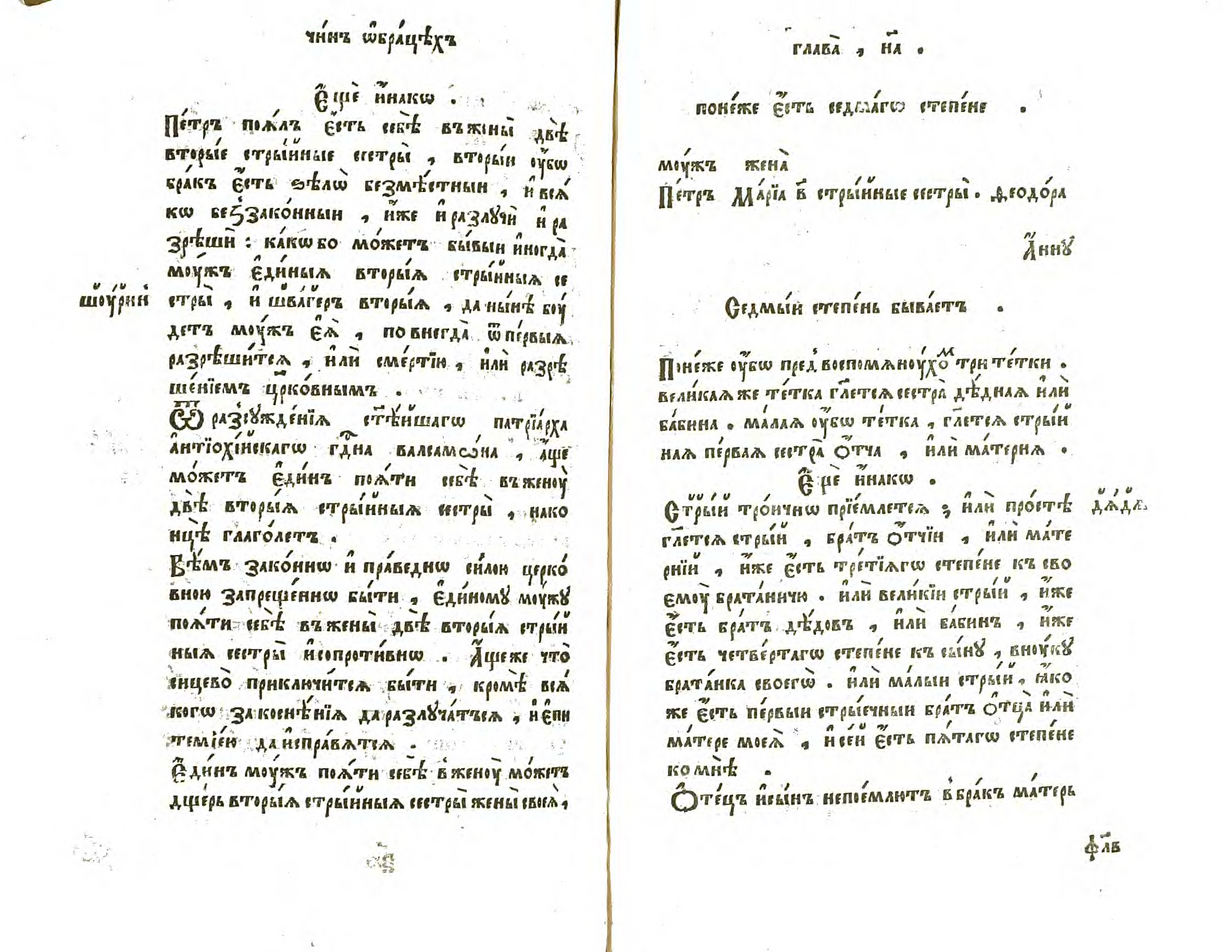 чи́нъ ѡ҆бра́цѣхъ
Е҆щѐ и҆́накѡ .
Пе́тръ поѧ́лъ є҆́сть себѣ̀ въжєны̀ двѣ̀
вторы́е стры́йные сестры̀ , вторы́и ᲂу҆́бѡ
бра́къ є҆́сть ѕѣлѡ̀ безмѣ́стныи , и҆всѧ́
кѡ беззако́нныи , и҆́же и҆разлꙋчѝ и҆ра
зрѣшѝ : ка́кѡбо мо́жетъ бы́выи и҆ногда̀
моу́жъ є҆ди́ныѧ вторы́ѧ стры́йныѧ се
шоу́рий
стры̀ , и҆ шва́геръ вторы́ѧ , даны́нѣ боу́
детъ моу́жъ є҆ѧ̀ , повнегда̀ ѿпе́рвыѧ
разрѣши́тсѧ , и҆лѝ сме́ртїю , и҆лѝ разрѣ
ше́нїемъ цр҃ко́внымъ .
Ѿ разсꙋжде́нїѧ ст҃ѣ́йшагѡ патрїа́рха
а҆нтїохі́йскагѡ гдⷭ҇на валсамѡ́на , а҆́ще
мо́жетъ є҆ди́нъ поѧ́ти себѣ̀ въженоу̀
двѣ̀ вторы́ѧ стры́йныѧ сестры̀ , нако
нцѣ̀ глаго́летъ .
Вѣ́мъ зако́ннѡ и҆ пра́веднѡ си́лою церко́
вною запреще́ннѡ бы́ти , є҆ди́ному моу́жꙋ
поѧ́ти себѣ̀ въжены̀ двѣ̀ вторы́ѧ стры́й
ныѧ сестры̀ и҆сопроти́внѡ . А҆́щеже что̀
сицево̀ приключи́тсѧ бы́ти , кромѣ̀ всѧ́
когѡ закоснѣ́нїѧ даразлꙋча́тъсѧ , и҆є҆пи
темі́ею даи҆спра́вѧтсѧ .
Е҆ди́нъ моу́жъ поѧ́ти себѣ̀ вженоу̀ мо́жетъ
дще́рь вторы́ѧ стры́йныѧ сестры̀ жены̀ своеѧ̀ ,
глава̀ , н҃а .
поне́же є҆́сть седма́гѡ степе́не .
моу́жъ жена̀
Пе́тръ Ма́рїа в҃ стры́йные сестры̀ . Ѳеодо́ра
А҆́ннꙋ
Седмы́й степе́нь быва́етъ .
Поне́же ᲂу҆́бѡ пред̾воспомѧноу́хоⷨ три те́тки .
вели́каѧже те́тка гл҃етсѧ сестра̀ дѣ́днаѧ и҆лѝ
ба́бина . ма́лаѧ ᲂу҆́бѡ те́тка , гл҃етсѧ стры́й
наѧ пе́рваѧ сестра̀ ѻ҆тча̀ , и҆лѝ ма́териѧ .
Е҆щѐ и҆́накѡ .
Стры́й тро́ичнѡ прїе́млетсѧ ; и҆лѝ про́стѣ
дѧ́дѧ.
гл҃етсѧ стры́й , бра́тъ ѻ҆́тчїи , и҆лѝ ма́те
рнїй , и҆́же є҆́сть тре́тїѧгѡ степе́не къ сво
ему̀ брата́ничю . и҆лѝ вели́кїи стры́й , и҆́же
є҆́сть бра́тъ дѣ́довъ , и҆лѝ ба́бинъ , и҆́же
є҆́сть четве́ртагѡ степе́не къ сы́нꙋ , вноу́кꙋ
брата́нка своегѡ̀ . и҆лѝ ма́лыи стры́й , ꙗ҆́ко
же є҆́сть пе́рвыи стры́ечныи бра́тъ ѻ҆тца̀ и҆лѝ
ма́тере моеѧ̀ , и҆се́й є҆́сть пѧ́тагѡ степе́не
ко мнѣ̀ .
Ѻ҆те́цъ и҆сы́нъ непоѐмлютъ вбра́къ ма́терь
фл҃в